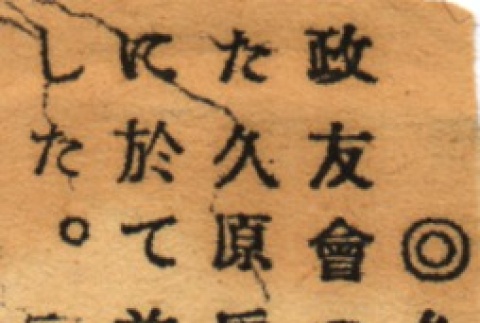 ◎
政友會
た久原
に於て
した。